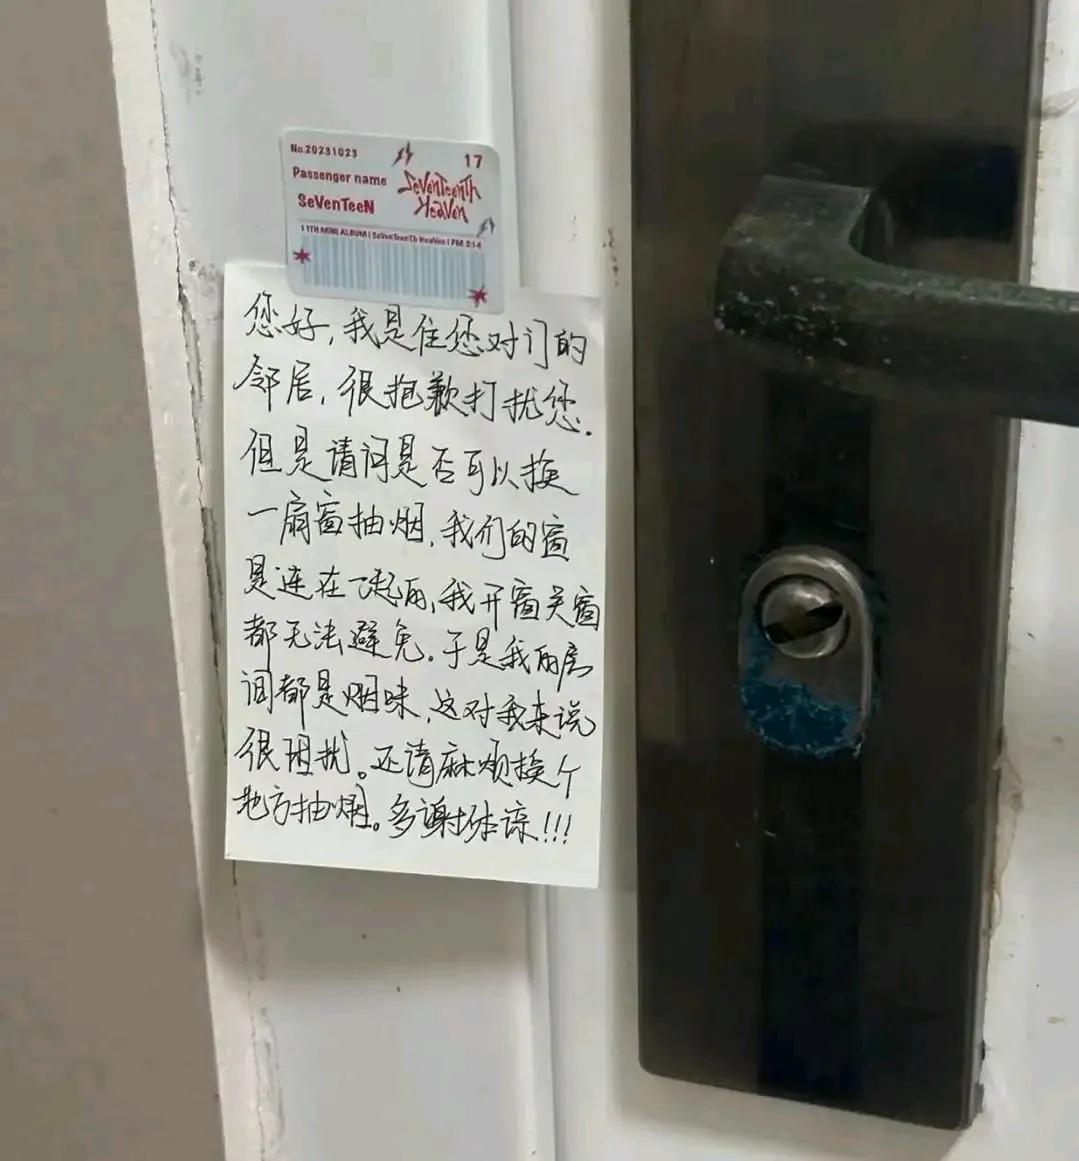 No.20231023
17
Passenger name
SeVenTeeN
SeVenTeenTh
HeaVen
11TH MINI ALBUM | SeVenTeenTh HeaVen | PM 2:14
您好，我是住您对门的
邻居，很抱歉打扰您.
但是请问是否可以换
一扇窗抽烟，我们的窗
是连在一起的，我开窗关窗
都无法避免.于是我的房
间都是烟味，这对我来说
很困扰。还请麻烦换个
地方抽烟。多谢体谅!!!